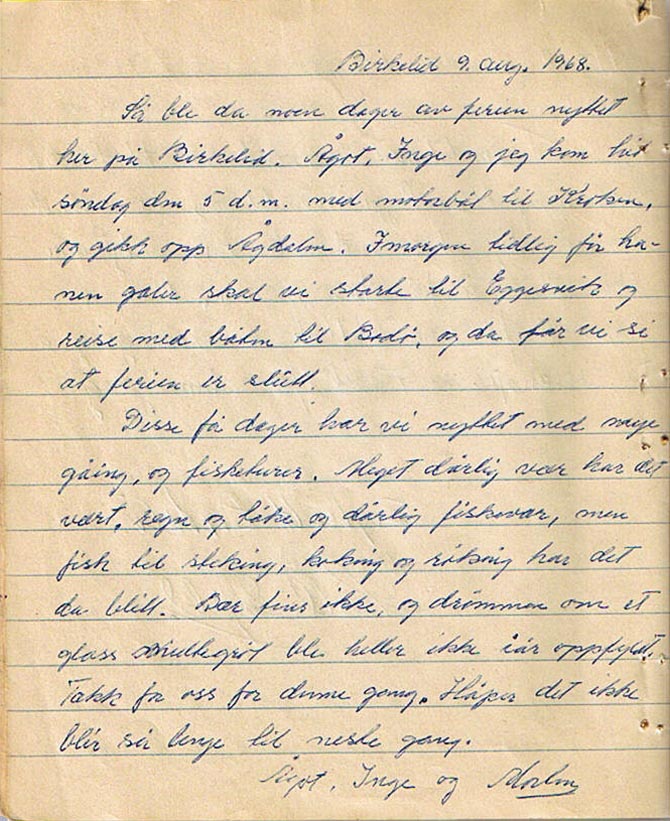 Birkelid 9. aug. 1968.
Så ble da noen dager av ferien nyttet
her på Birkelid. Ågot, Inge og jeg kom hit
søndag den 5 d.m. med motorbål til Kroken,
og gikk opp Ågdalen. Imorgen tidlig før ha-
nen galer skal vi starte til Eggesvik og
reise med båten til Bodø, og da får vi si
at ferien er slutt.
Disse få dager har vi nyttet med mye
gåing, og fisketurer. Meget dårlig vær har det
vært, regn og tåke og dårlig fiskevær, men
fisk til steking, koking og røking har det
da blitt. Bær fins ikke, og drømmen om et
glass multegrøt ble heller ikke iår oppfylt.
Takk for oss for denne gang. Håper det ikke
blir så lenge til neste gang.
Ågot, Inge og